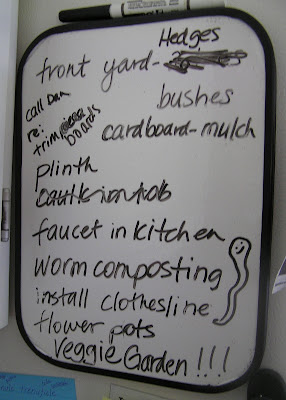 Hedges
front yard-
bushes
call Dan
re:
trim boards
cardboard-mulch
plinth
faucet in kitchen
worm composting
install clothesline
flower pots
Veggie Garden !!!